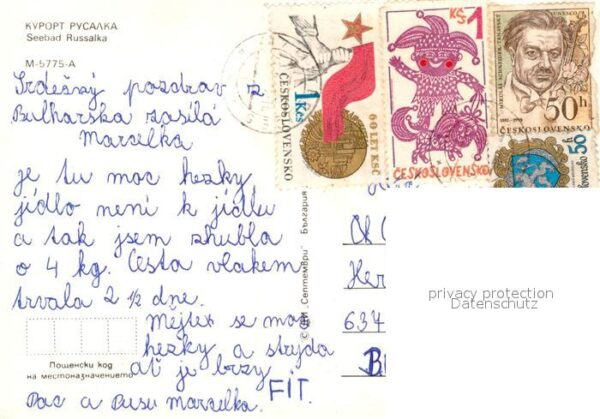 КУРОРТ РУСАЛКА
Seebad Russalka
М-5775-А
Srdečný pozdrav z
Bulharska zasílá
Marcelka
je tu moc hezky,
jídlo není k jídlu
a tak jsem zhubla
o 4 kg. Cesta vlakem
trvala 2 ½ dne.
Mějte se moc
hezky a strýda
ať je brzy
FIT.
Pac a Pusu Marcelka.
Пощенски код
на местоназначението
"Септември" България
1 Kčs
ČESKOSLOVENSKO
60 LET KSČ
KčS 1
ČESKOSLOVENSKO
50 h
ČESKOSLOVENSKO
50 h
Her
634
B
privacy protection
Datenschutz